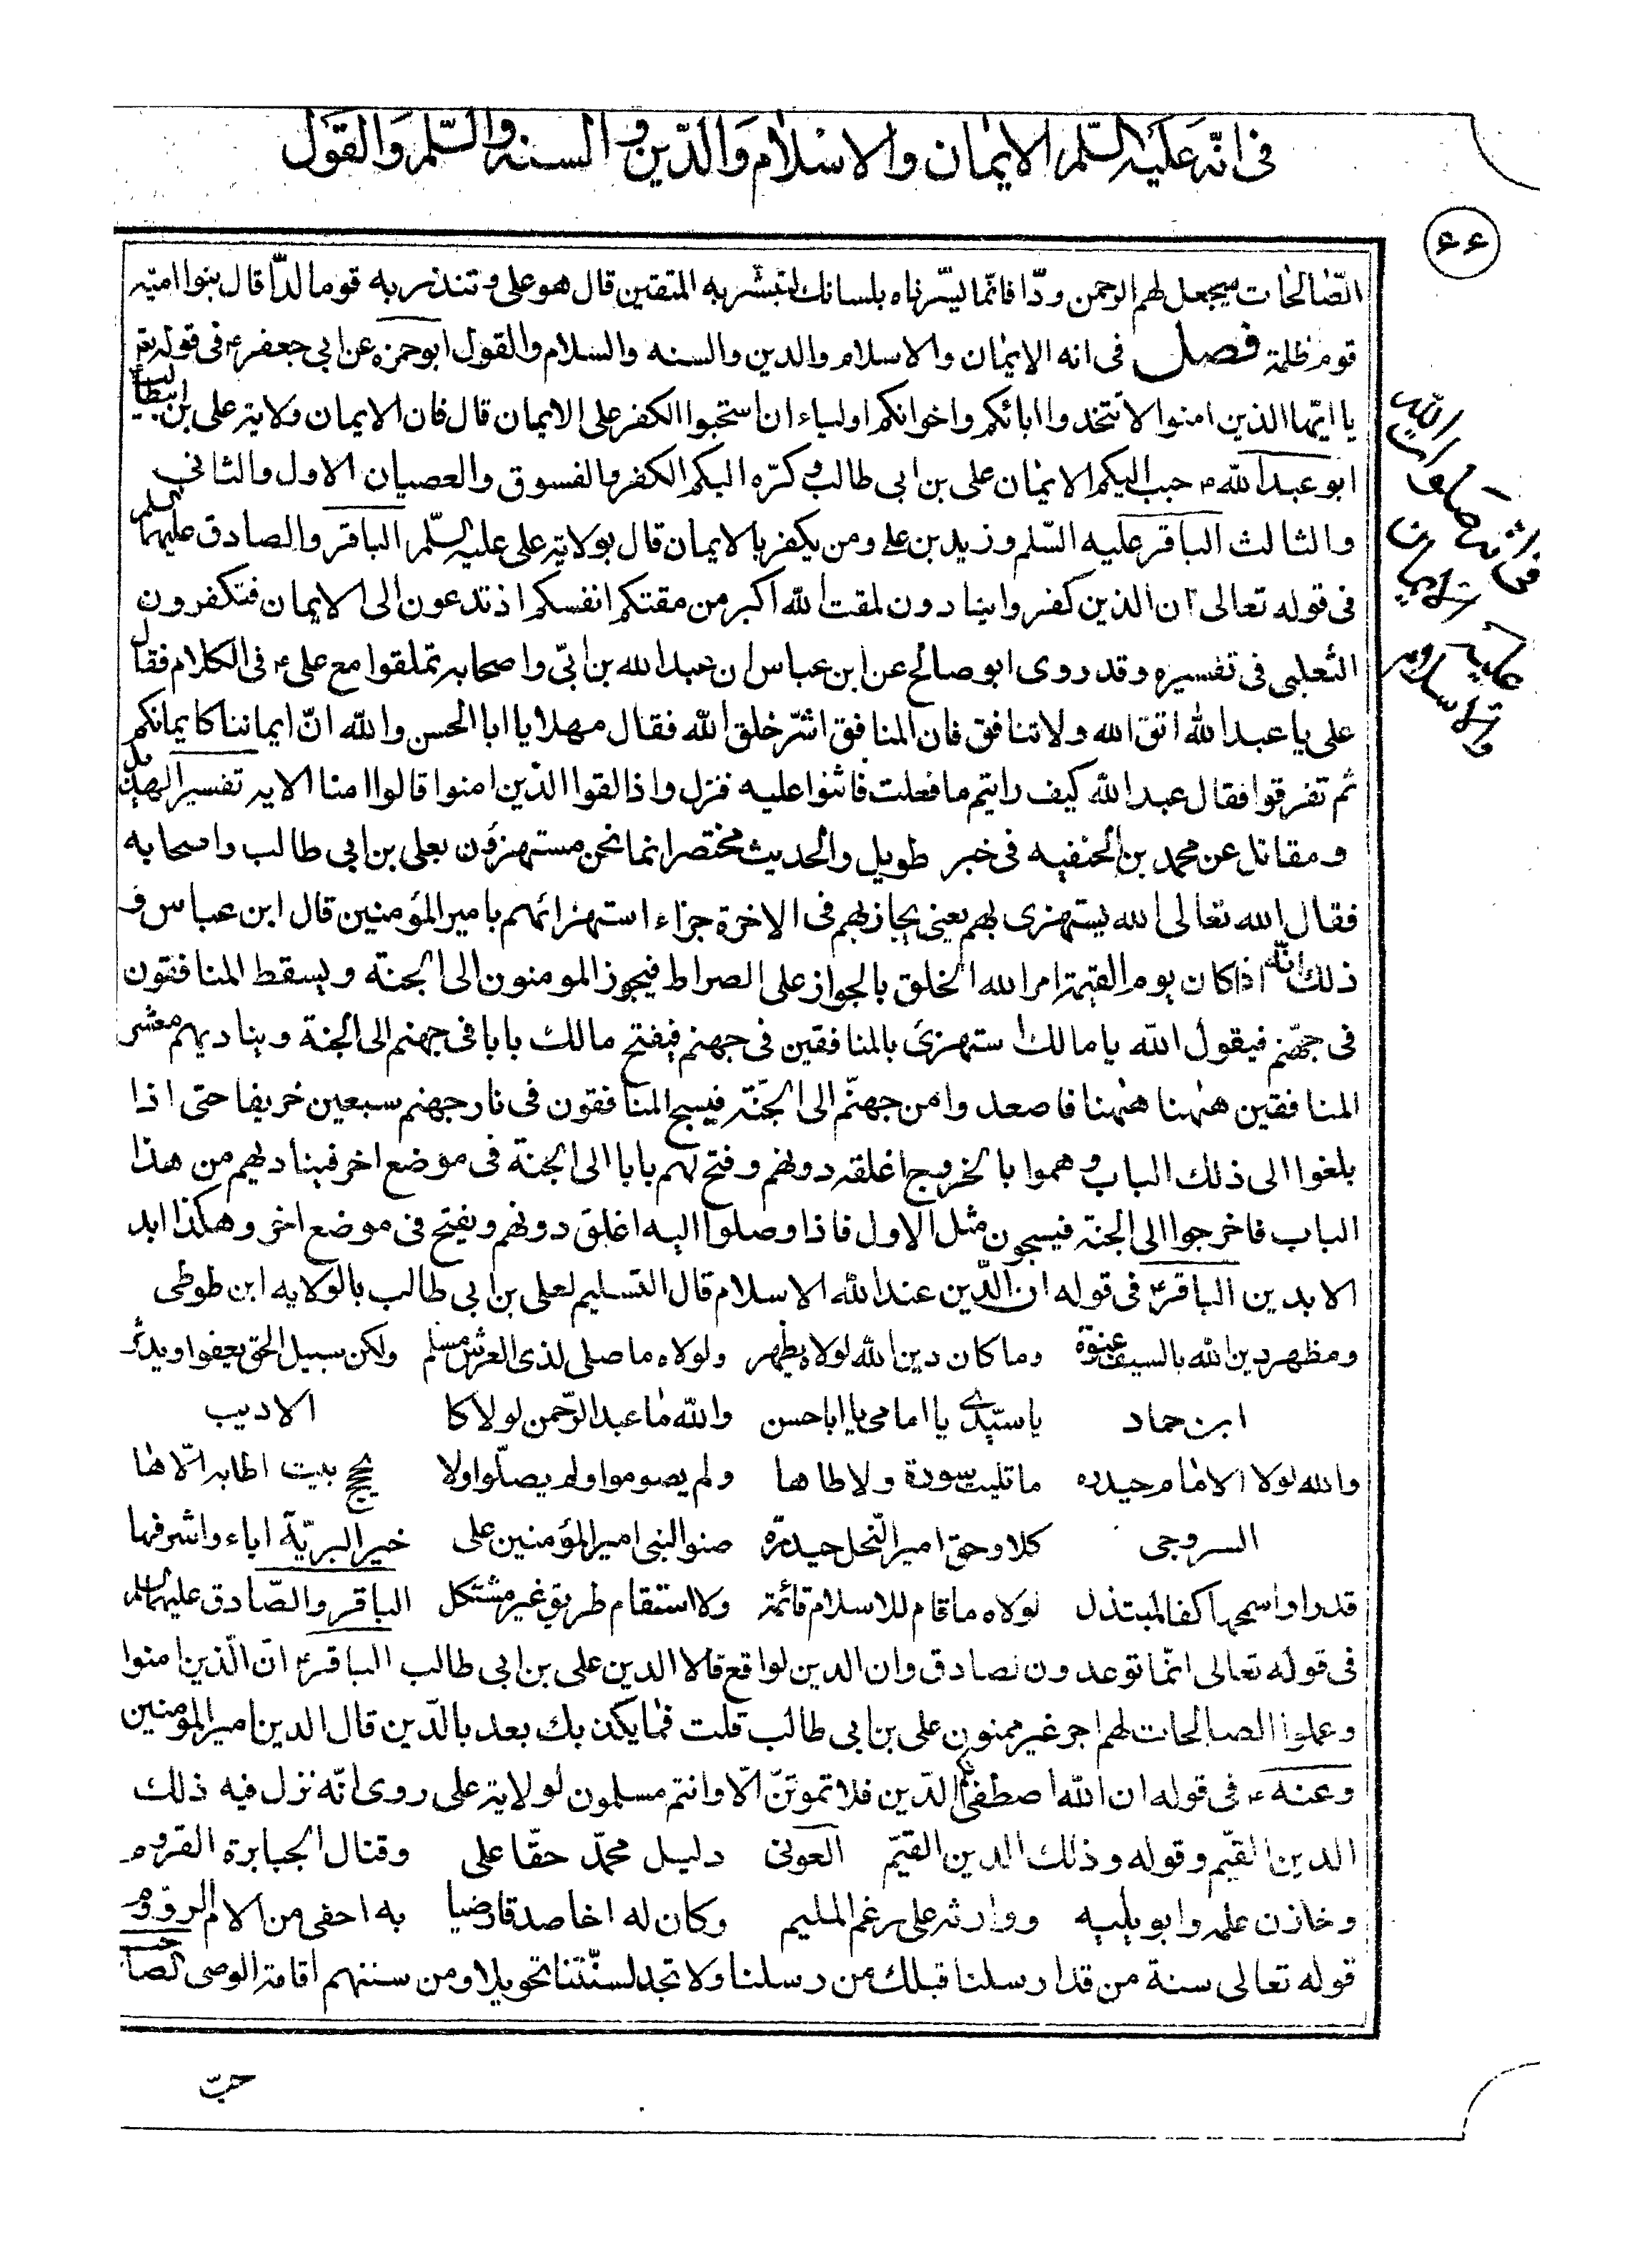 فى انّه عليه السّلم الايمان والاسلام والدّين والسنه والسّلم والقول
۶۶
الصّالحات سيجعل لهم الرحمن ودّا فانّما يسّرناه بلسانك لتبشّر به المتقين قال هو على وتنذر به قوما لدّا قال بنوا اميّه
قوم ظلمة فصل فى انه الايمان والاسلام والدين والسنه والسلام والقول ابو حمزه عن ابى جعفر ع فى قوله تع
يا ايّها الذين امنوا لا تتخذوا ابائكم واخوانكم اولياء ان استحبوا الكفر على الايمان قال فان الايمان ولاية على بن ابيطالب
ابو عبد الله ع حبب اليكم الايمان على بن ابى طالب وكرّه اليكم الكفر والفسوق والعصيان الاول والثانى
والثالث الباقر عليه السّلم وزيد بن على ومن يكفر بالايمان قال بولاية على عليه السّلم الباقر والصادق عليهما السلم
فى قوله تعالى ان الذين كفروا ينادون لمقت الله اكبر من مقتكم انفسكم اذ تدعون الى الايمان فتكفرون
الثعلبى فى تفسيره وقد روى ابو صالح عن ابن عباس ان عبد الله بن ابىّ واصحابه تملقوا مع على ع فى الكلام فقال
على يا عبد الله اتق الله ولا تنافق فان المنافق اشرّ خلق الله فقال مهلا يا ابا الحسن والله انّ ايماننا كايمانكم
ثم تفرقوا فقال عبد الله كيف رايتم ما فعلت فاثنوا عليه فنزل واذا لقوا الذين امنوا قالوا امنا الايه تفسير الهذيل
ومقاتل عن محمد بن الحنفيه فى خبر طويل والحديث مختصر انما نحن مستهزؤن بعلى بن ابى طالب واصحابه
فقال الله تعالى الله يستهزى بهم يعنى يجازيهم فى الاخرة جزاء استهزائهم بامير المؤمنين قال ابن عباس و
ذلك انّه اذا كان يوم القيمة امر الله الخلق بالجواز على الصراط فيجوز المومنون الى الجنة ويسقط المنافقون
فى جهّنم فيقول الله يا مالك استهزئ بالمنافقين فى جهنم فيفتح مالك بابا فى جهنم الى الجنة ويناديهم معشر
المنافقين ههنا ههنا فاصعدوا من جهنّم الى الجنّة فيسبح المنافقون فى نار جهنم سبعين خريفا حتى اذا
بلغوا الى ذلك الباب وهموا بالخروج اغلقه دونهم وفتح لهم بابا الى الجنة فى موضع اخر فيناديهم من هذا
الباب فاخرجوا الى الجنة فيسبحون مثل الاول فاذا وصلوا اليه اغلق دونهم ويفتح فى موضع اخر وهكذا ابد
الابدين الباقر ع فى قوله ان الدّين عند الله الاسلام قال التسليم لعلى بن ابى طالب بالولايه ابن طوطى
ومظهر دين الله بالسيف عنوة وما كان دين الله لولاه يظهر ولولاه ما صلى لذى العرش مسلم ولكن سبيل الحق يعفوا ويدثر
ابن حماد يا سيّدى يا امامى يا ابا حسن والله ما عبد الرّحمن لولاكا الاديب
والله لولا الامام حيدره ما تليت سورة ولا طاها ولم يصوموا ولم يصلّوا ولا يحج بيت اطابه الّاها
السروجى كلا وحق امير النّحل حيدرة صنو النبى امير المؤمنين على خير البريّة اباء واشرفها
قدرا واسمحها كفا لمبتذل لولاه ما قام للاسلام قائمة ولا استقام طريق غير مشتكل الباقر والصّادق عليهما السلم
فى قوله تعالى انّما توعدون لصادق وان الدين لواقع قالا الدين على بن ابى طالب الباقر ع انّ الّذين امنوا
وعملوا الصالحات لهم اجر غير ممنون على بن ابى طالب قلت فما يكذبك بعد بالدّين قال الدين امير المؤمنين
وعنه ع فى قوله ان الله اصطفى لكم الدّين فلا تموتنّ الّا وانتم مسلمون لولاية على روى انّه نزل فيه ذلك
الدين القيّم وقوله وذلك الدين القيّم العونى دليل محمّد حقّا على وقتال الجبابرة القروم
وخازن علمه وابو بنيه ووارثه على رغم المليم وكان له اخا صدقا رضيا به احفى من الام الرؤوم
قوله تعالى سنة من قد ارسلنا قبلك من رسلنا ولا تجد لسنّتنا تحويلا ومن سننهم اقامة الوصى
فى انه صلوات الله
عليه الايمان
والاسلام